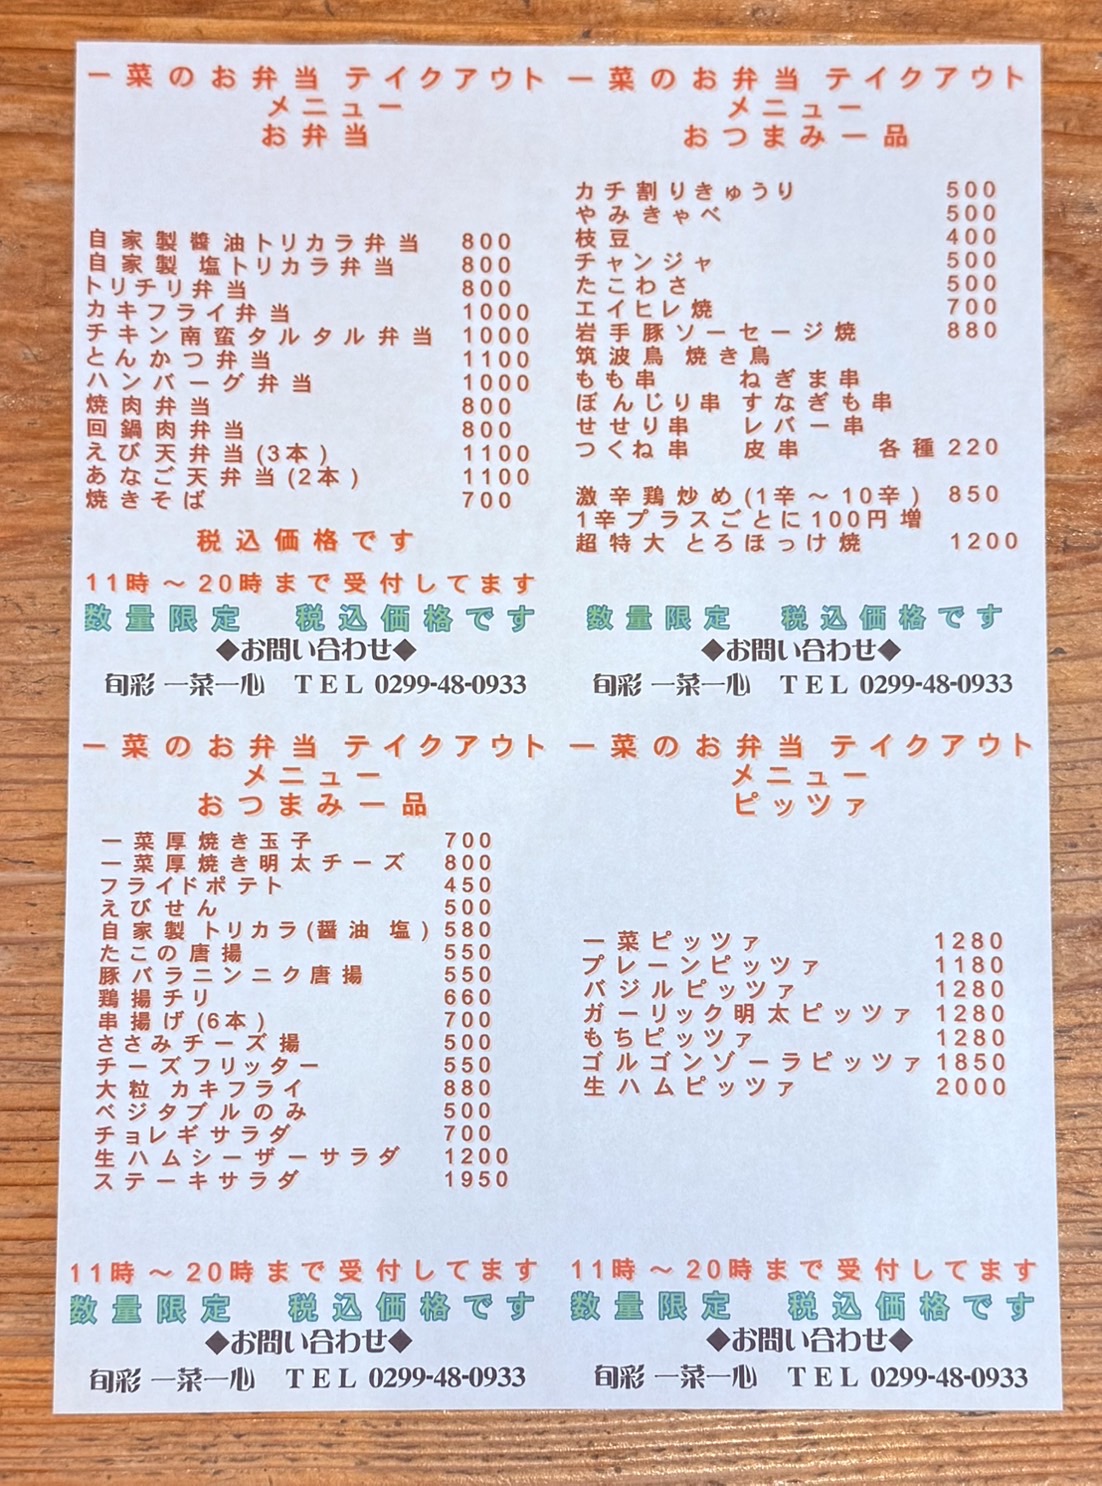 一菜のお弁当 テイクアウト
メニュー
お弁当
自家製醬油トリカラ弁当 800
自家製 塩トリカラ弁当 800
トリチリ弁当 800
カキフライ弁当 1000
チキン南蛮タルタル弁当 1000
とんかつ弁当 1100
ハンバーグ弁当 1000
焼肉弁当 800
回鍋肉弁当 800
えび天弁当(3本) 1100
あなご天弁当(2本) 1100
焼きそば 700
税込価格です
11時～20時まで受付してます
数量限定 税込価格です
◆お問い合わせ◆
旬彩 一菜一心 TEL 0299-48-0933
一菜のお弁当 テイクアウト
メニュー
おつまみ一品
カチ割りきゅうり 500
やみきゃべ 500
枝豆 400
チャンジャ 500
たこわさ 500
エイヒレ焼 700
岩手豚ソーセージ焼 880
筑波鳥 焼き鳥
もも串 ねぎま串
ぼんじり串 すなぎも串
せせり串 レバー串
つくね串 皮串 各種 220
激辛鶏炒め(1辛～10辛) 850
1辛プラスごとに100円増
超特大 とろほっけ焼 1200
数量限定 税込価格です
◆お問い合わせ◆
旬彩 一菜一心 TEL 0299-48-0933
一菜のお弁当 テイクアウト
メニュー
おつまみ一品
一菜厚焼き玉子 700
一菜厚焼き明太チーズ 800
フライドポテト 450
えびせん 500
自家製 トリカラ(醤油 塩) 580
たこの唐揚 550
豚バラニンニク唐揚 550
鶏揚チリ 660
串揚げ(6本) 700
ささみチーズ揚 500
チーズフリッター 550
大粒 カキフライ 880
ベジタブルのみ 500
チョレギサラダ 700
生ハムシーザーサラダ 1200
ステーキサラダ 1950
11時～20時まで受付してます
数量限定 税込価格です
◆お問い合わせ◆
旬彩 一菜一心 TEL 0299-48-0933
一菜のお弁当 テイクアウト
メニュー
ピッツァ
一菜ピッツァ 1280
プレーンピッツァ 1180
バジルピッツァ 1280
ガーリック明太ピッツァ 1280
もちピッツァ 1280
ゴルゴンゾーラピッツァ 1850
生ハムピッツァ 2000
11時～20時まで受付してます
数量限定 税込価格です
◆お問い合わせ◆
旬彩 一菜一心 TEL 0299-48-0933